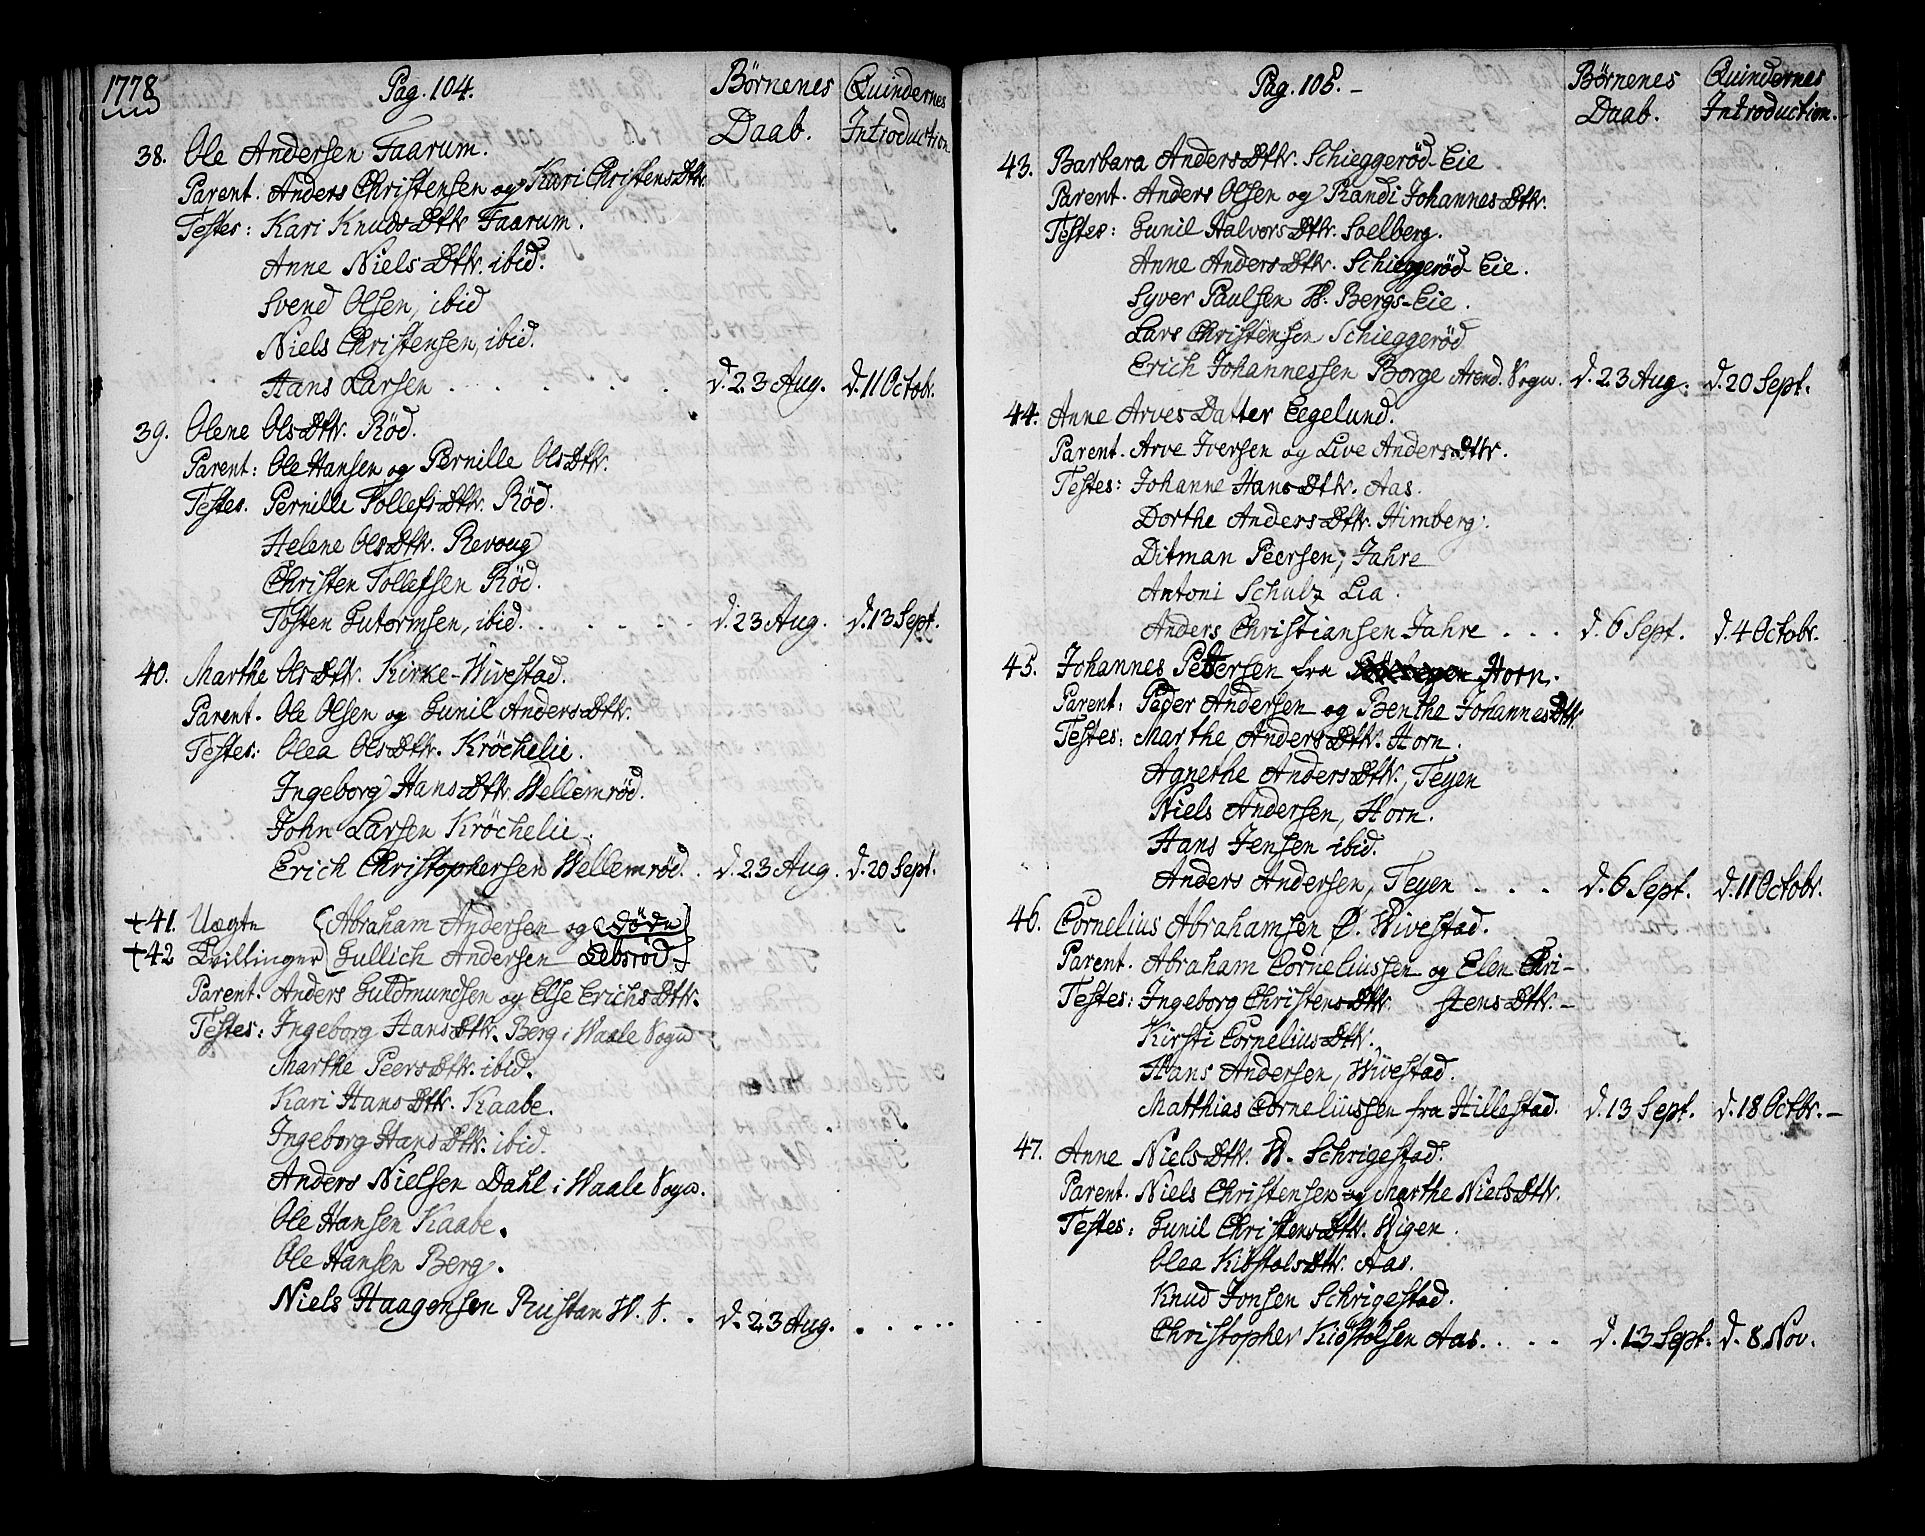 1778
Pag. 104.
Børnenes Daab.
Quindernes Introduction
38. Ole Andersen Faarum.
Parent. Anders Christensen og Kari ChristensDttr.
Testes: Kari KnudsDttr Faarum.
Anne NielsDttr. ibid.
Svend Olsen, ibid
Niels Christensen, ibid.
Hans Larsen . . . . . . d. 23 Aug. d. 11 Octobr.
39. Olene OlsDttr. Rød.
Parent: Ole Hansen og Pernille OlsDttr.
Testes. Pernille TollefsDttr. Rød.
Helene OlsDttr. Revoug
Christen Tollefsen Rød.
Tosten Gutormsen, ibid. . . . . . d. 23 Aug. d. 13 Sept.
40. Marthe OlsDttr. Kirke-Wivestad.
Parent. Ole Olsen og Gunil AndersDttr.
Testes: Olea OlsDttr. Krøchelie.
Ingeborg HansDttr Wellemrød.
John Larsen Krøchelie.
Erich Christophersen Wellemrød. . d. 23 Aug. d. 20 Sept.
+41. Uægte (Abraham Andersen og (døde)
+42 Tvillinger (Gullich Andersen Lebsrød.)
Parent. Anders Guldmundsen og Else ErichsDttr.
Testes: Ingeborg HansDttr. Berg i Waale Sogn
Marthe PeersDttr. ibid.
Kari HansDttr. Kaabe.
Ingeborg HansDttr. ibid.
Anders Nielsen Dahl i Waale Sogn.
Ole Hansen Kaabe.
Ole Hansen Berg.
Niels Haagensen Rustan W. S. . d. 23 Aug. . . . . .
Pag. 105. -
Børnenes Daab.
Quindernes Introduction.
43. Barbara AndersDttr. Schieggerød-Eie
Parent. Anders Olsen og Randi JohannesDttr.
Testes: Gunil HalvorsDttr. Soelberg.
Anne AndersDttr. Schieggerød-Eie.
Syver Paulsen W. Bergs-Eie.
Lars Christensen Schieggerød
Erich Johannessen Borge Arend. Sogn. d. 23 Aug. d. 20 Sept.
44. Anne Arves Datter Eegelund.
Parent. Arve Iversen og Live AndersDttr.
Testes: Johanne HansDttr. Aas.
Dorthe AndersDttr. Himberg.
Ditman Peersen, Jahre
Antoni Schulz Lia.
Anders Christiansen Jahre . . . d. 6 Sept. d. 4 Octobr.
45. Johannes Pettersen fra Horn.
Parent: Peder Andersen og Benthe JohannesDttr.
Testes: Marthe AndersDttr. Horn.
Agnethe AndersDttr., Teyen
Niels Andersen, Horn.
Hans Jensen ibid.
Anders Andersen, Teyen . . . d. 6 Sept. d. 11 Octobr.
46. Cornelius Abrahamsen Ø. Wivestad.
Parent. Abraham Corneliussen og Elen Chri-
Testes: Ingeborg ChristensDttr. stensDttr. -
Kirsti CorneliusDttr.
Hans Andersen, Wivestad.
Matthias Corneliussen fra Hillestad. d. 13 Sept. d. 18 Octbr. -
47. Anne NielsDttr. W. Schrigestad.
Parent. Niels Christensen og Marthe NielsDttr.
Testes: Gunil ChristensDttr. Wigen.
Olea KibstolsDttr. Aas.
Knud Jonsen Schrigestad.
Christopher Kibstolsen Aas. . . . d. 13 Sept. d. 8. Nov.